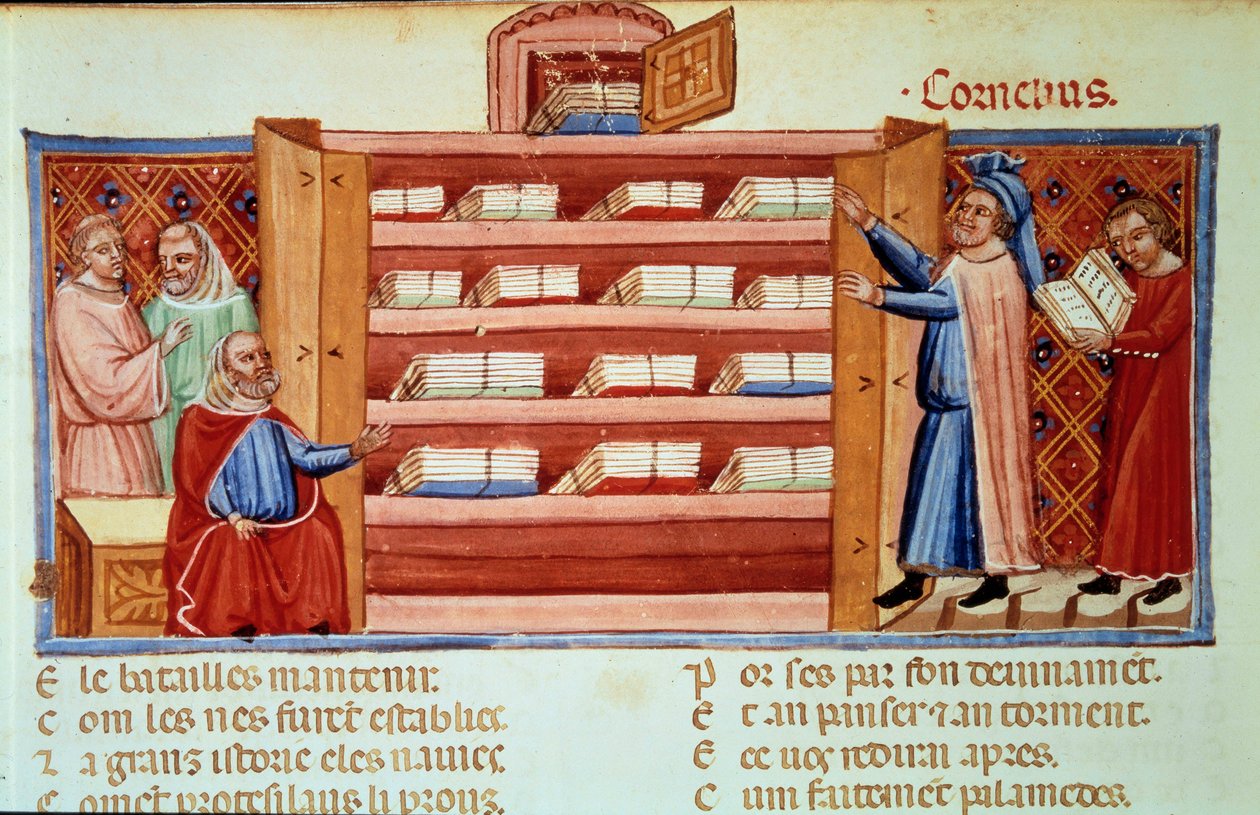 ·Cornelius.
E le batailles mantenir.
C om les nes furēt establies.
⁊ a granz istorie eles nauies.
C omēt protesilaus li prouz.
P or ses par son deuinamēt.
E t an panser ⁊ an torment.
E ce uos redirai apres.
C um faitemēt palamedes.